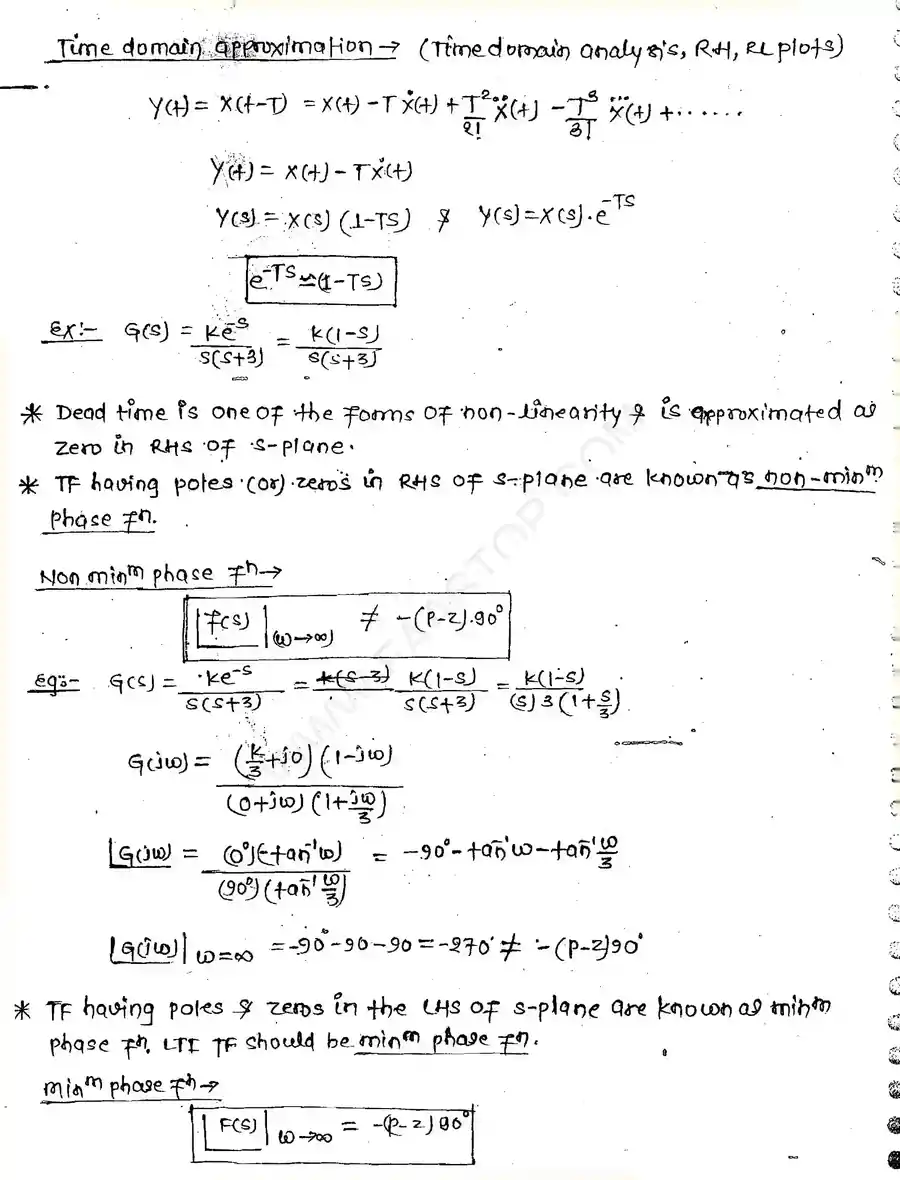 Time domain approximation → (Time domain analysis, RH, RL plots)
Y(t) = X(t-T) = X(t) - T Ẋ(t) + T²/2! Ẍ(t) - T³/3! X⃛(t) + ......
Y(t) = X(t) - T Ẋ(t)
Y(s) = X(s) (1-TS) & Y(s) = X(s).e^-TS
e^-TS ≃ (1-TS)
Ex:- G(s) = Ke^-s / s(s+3) = K(1-s) / s(s+3)
* Dead time is one of the forms of non-linearity & is approximated as
zero in RHS of s-plane.
* TF having poles (or) zeros in RHS of s-plane are known as non-min^m
phase f^n.
Non min^m phase f^n →
∠F(s)|ω→∞ ≠ -(P-Z).90°
Eg:- G(s) = Ke^-s / s(s+3) = K(s-3) K(1-s) / s(s+3) = K(1-s) / (s) 3 (1+s/3)
G(jω) = (K/3 + j0) (1-jω) / (0+jω) (1+jω/3)
∠G(jω) = (0°)(-tan⁻¹ω) / (90°)(tan⁻¹ ω/3) = -90° - tan⁻¹ω - tan⁻¹ ω/3
∠G(jω)|ω=∞ = -90° - 90 - 90 = -270° ≠ -(P-Z)90°
* TF having poles & zeros in the LHS of s-plane are known as min^m
phase f^n. LTI TF should be min^m phase f^n.
min^m phase f^n →
∠F(s)|ω→∞ = -(P-Z)90°